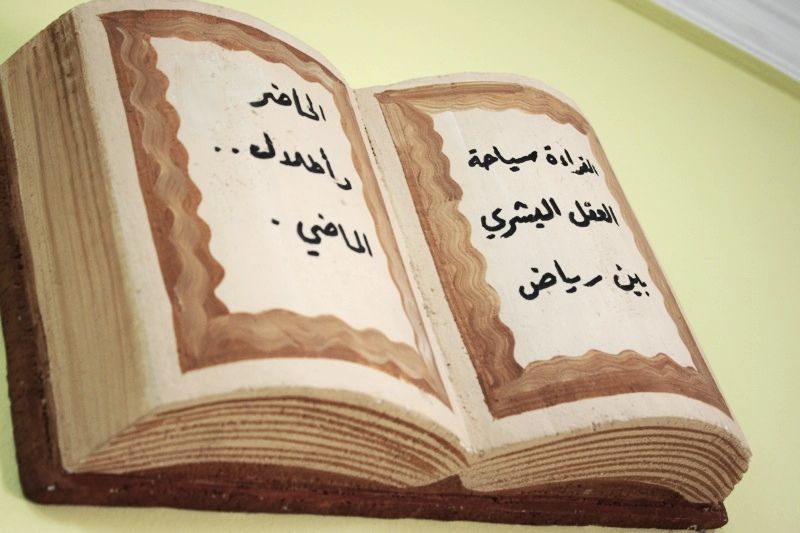 القراءة سياحة
العقل البشري
بين رياض
الحاضر
وأطلال..
الماضي.